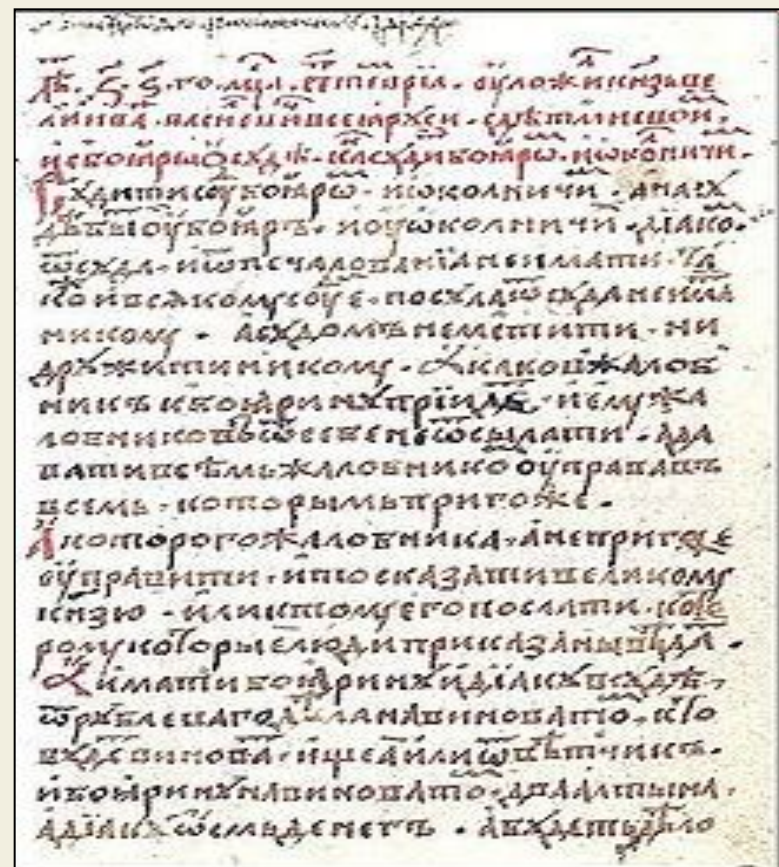 лѣ. ҂ з҃. ѕ҃. го. мцⷭ҇а. септеврїа. оуложи кнѧзь ве
ликїи ива. василеви всеѧ рѹси. с дѣтми свои.
и с боꙗры ѡ сѹдѣ. ка сѹди боꙗрѡ. и ѡколничи.
Сѹдити сѹ боꙗрѡ. и ѡколничи. а на сѹ
дѣ быти оу боꙗръ. и оу ѡколничи. дїако.
ѿ сѹда. и ѿ печалованїа не имати. та
ко и всѧкомѹ сѹе. посѹла ѿ сѹда не има
никомѹ. а сѹдомъ не мстити. ни
дрѹжити никомѹ. А каков жалоб
никъ к боꙗринѹ прїидѣ. и емѹ жа
лобниковъ ѿ себе не ѿсылати. а да
вати всѣмъ жалобнико оуправа въ
всемь. которымь пригоже.
А которого жалобника. а непригоже
оуправити. и то сказати великомѹ
кнѧзю. или к томѹ его послати. кото
ромѹ которые люди приказаны вѣда.
А имати боꙗринѹ и дїакѹ в сѹдѣ.
ѿ рѹблеваго дѣла на виновато. кто
бѹде винова. ищеа или ѿвѣтчикъ.
и боꙗринѹ на виновато. два алтына.
а дїакѹ ѡсмь денегъ. а бѹдеть дѣло